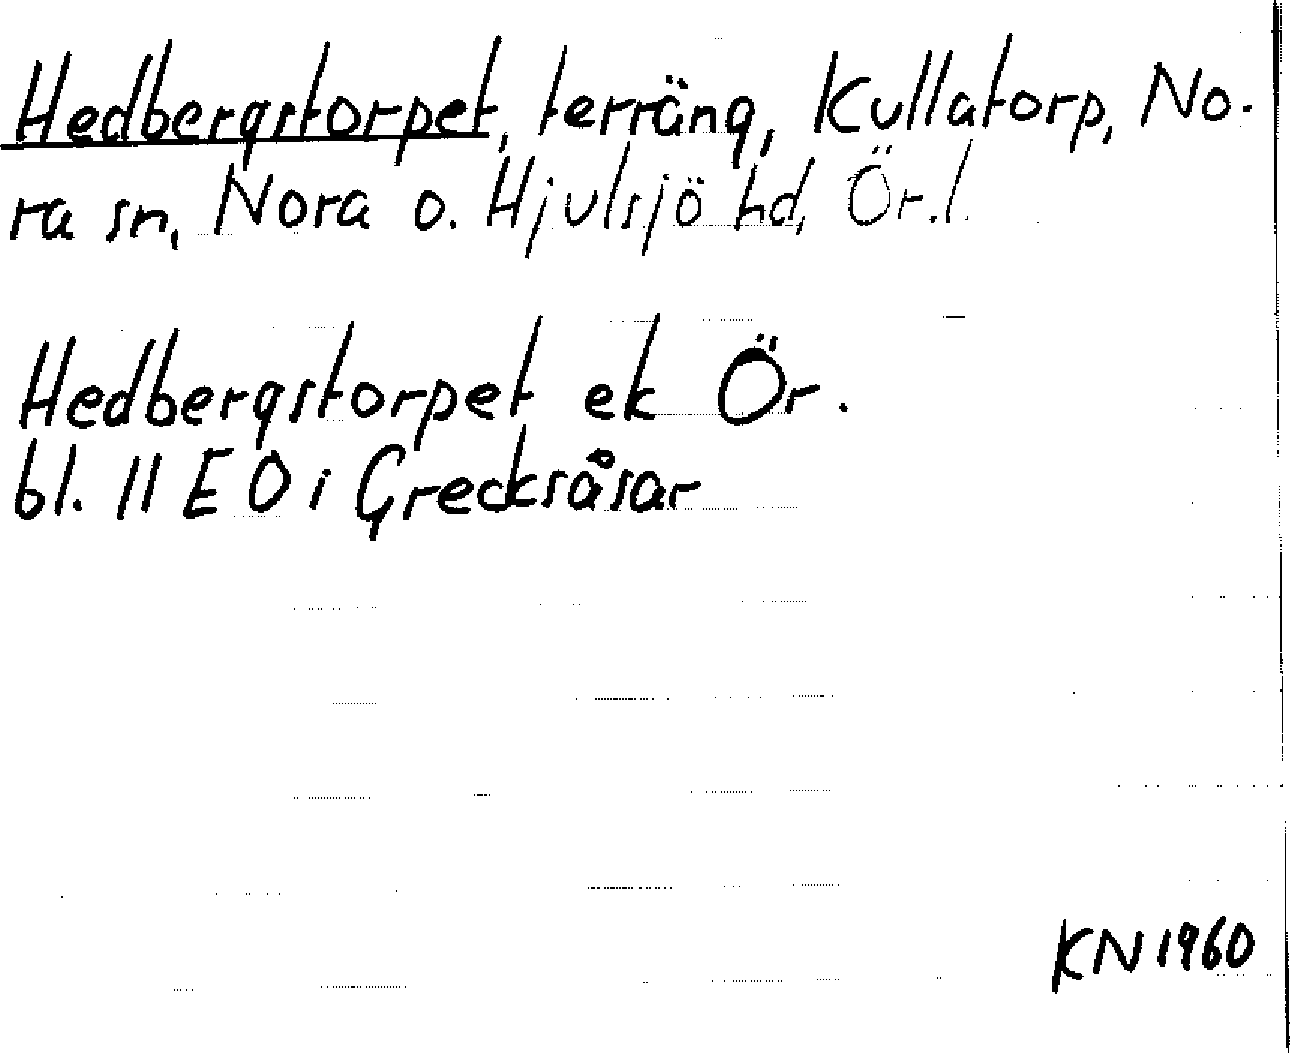 Hedbergstorpet, terräng, Kullatorp, No-
ra sn, Nora o. Hjulsjö hd, Ör. l.
Hedbergstorpet ek Ör.
bl. 11 E O i Grecksåsar
KN 1960